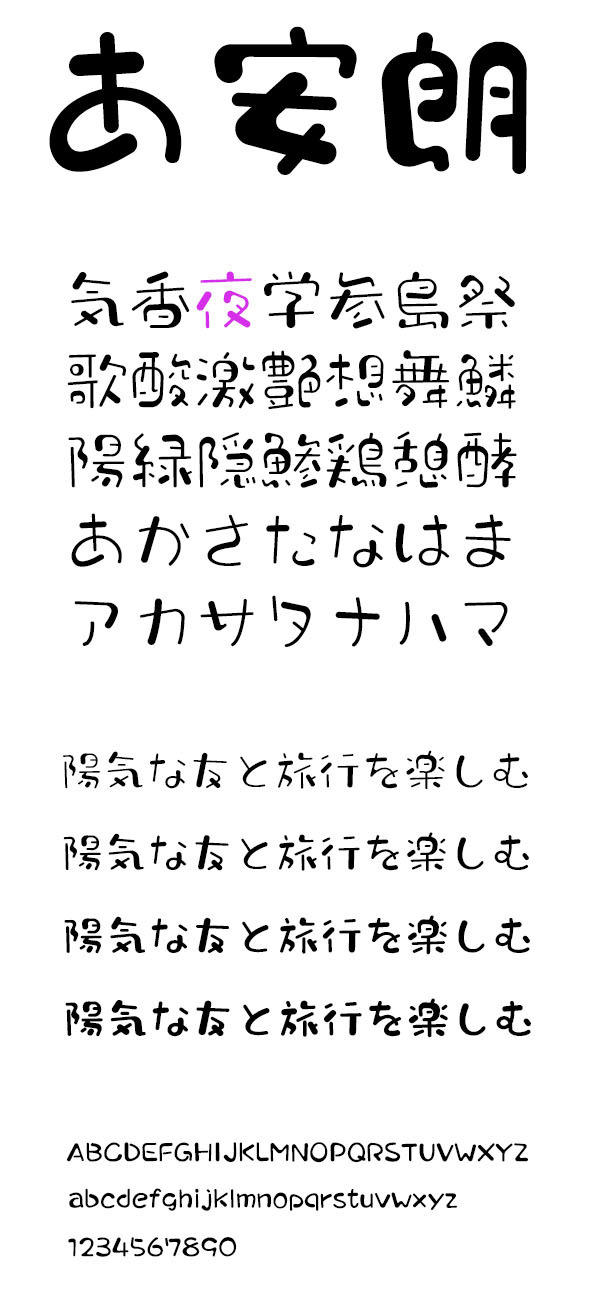 あ安朗
気香夜学参島祭
歌酸激艶想舞鱗
陽緑隠鯵鶏憩酵
あかさたなはま
アカサタナハマ
陽気な友と旅行を楽しむ
陽気な友と旅行を楽しむ
陽気な友と旅行を楽しむ
陽気な友と旅行を楽しむ
ABCDEFGHIJKLMNOPQRSTUVWXYZ
abcdefghijklmnopqrstuvwxyz
1234567890